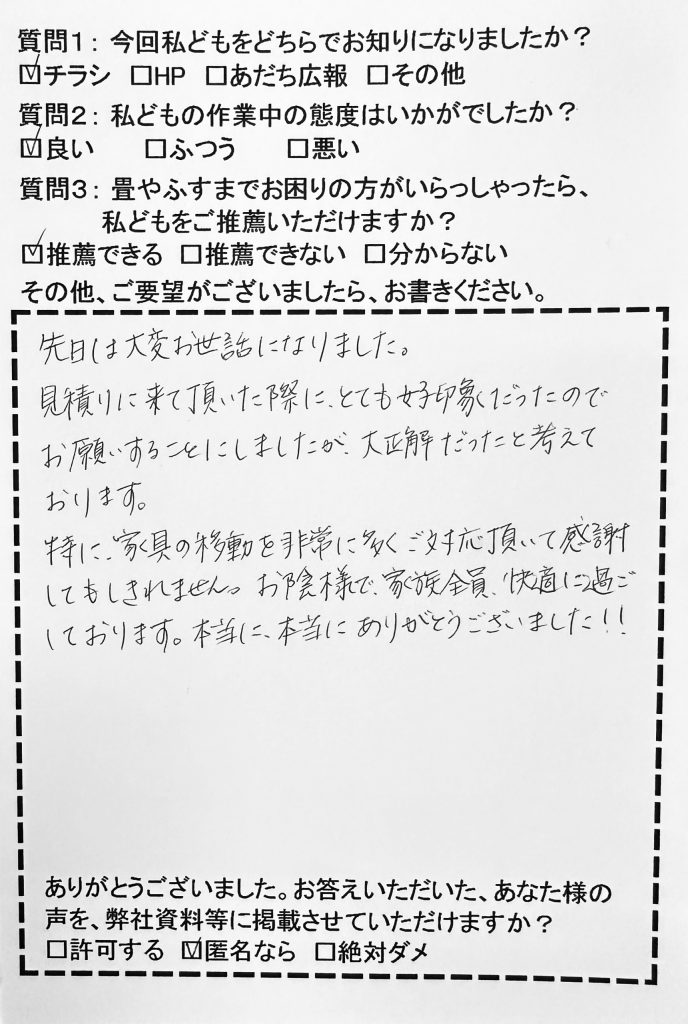 質問1：今回私どもをどちらでお知りになりましたか？
☑チラシ □HP □あだち広報 □その他
質問2：私どもの作業中の態度はいかがでしたか？
☑良い □ふつう □悪い
質問3：畳やふすまでお困りの方がいらっしゃったら、
私どもをご推薦いただけますか？
☑推薦できる □推薦できない □分からない
その他、ご要望がございましたら、お書きください。
先日は大変お世話になりました。
見積りに来て頂いた際に、とても好印象だったので
お願いすることにしましたが、大正解だったと考えて
おります。
特に、家具の移動を非常に多くご対応頂いて感謝
してもしきれません。お陰様で、家族全員、快適に過ご
しております。本当に、本当にありがとうございました！！
ありがとうございました。お答えいただいた、あなた様の
声を、弊社資料等に掲載させていただけますか？
□許可する ☑匿名なら □絶対ダメ